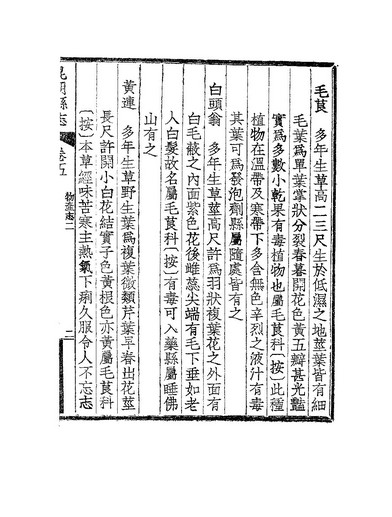 毛茛　多年生草高一二三尺生於低濕之地莖葉皆有細
毛葉爲單葉掌狀分裂春暮開花色黃五瓣甚光豔
實爲多數小乾果有毒植物也屬毛茛科〔按〕此種
植物在溫帶及寒帶下多含無色辛烈之液汁有毒
其葉可爲發泡劑縣屬隨處皆有之
白頭翁　多年生草莖高尺許爲羽狀複葉花之外面有
白毛蔽之內面紫色花後雌蕊尖端有毛下垂如老
人白髮故名屬毛茛科〔按〕有毒可入藥縣屬睡佛
山有之
黃連　多年生草野生葉爲複葉微類芹葉早春出花莖
長尺許開小白花結實子色黃根色亦黃屬毛茛科
〔按〕本草經味苦寒主熱氣下痢久服令人不忘志
昆明縣志　卷五　物產志二　二